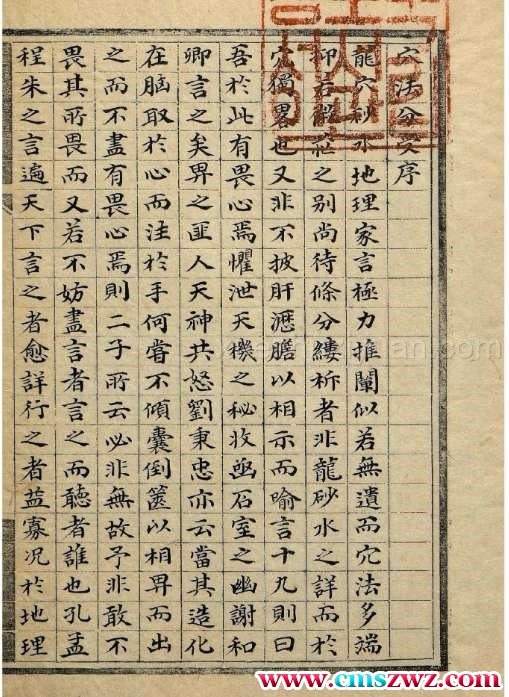 穴法分受序
龍穴砂水地理家言極力推闡似若無遺而穴法多端
抑若穠莊之别尚待條分縷柝者非龍砂水之詳而於
穴獨畧也又非不披肝瀝膽以相示而喻言十九則曰
吾於此有畏心焉懼泄天機之秘收凾石室之幽謝和
卿言之矣畀之匪人天神共怒劉秉忠亦云當其造化
在脑取於心而注於手何嘗不傾囊倒篋以相畀而出
之而不盡有畏心焉則二子所云必非無故予非敢不
畏其所畏而又若不妨盡言者言之而聽者誰也孔孟
程朱之言遍天下言之者愈詳行之者益寡况於地理
www.cmszwz.com